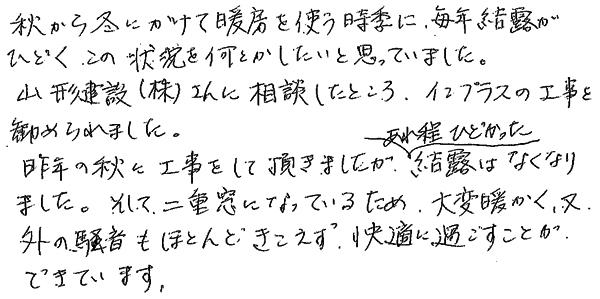 秋から冬にかけて暖房を使う時季に、毎年結露が
ひどく、この状況を何とかしたいと思っていました。
山形建設(株)さんに相談したところ、インプラスの工事を
勧められました。
あれ程ひどかった
昨年の秋に工事をして頂きましたが、結露はなくなり
ました。そして、二重窓になっているため、大変暖かく、又、
外の騒音もほとんどきこえず、快適に過ごすことが、
できています。